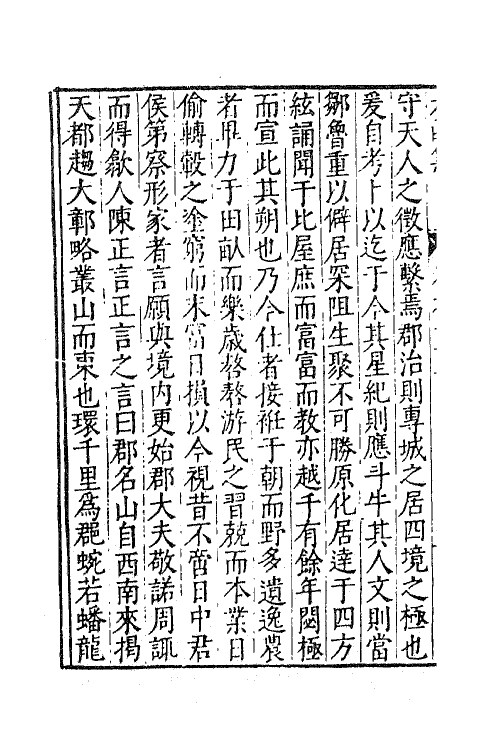 守天人之徵應繫焉郡治則專城之居四境之極也
爰自考卜以迄于今其星紀則應斗牛其人文則當
鄒魯重以僻居深阻生聚不可勝原化居達于四方
絃誦聞于比屋庶而富富而教亦越千有餘年閟極
而宣此其朔也乃今仕者接袵于朝而野多遺逸農
者毋力于田畝而樂歲嗸嗸游民之習兢而本業日
偷轉轂之塗窮而末富日損以今視昔不啻日中君
侯第察形家者言願與境內更始郡大夫敬諾周諏
而得歙人陳正言正言之言曰郡名山自西南來揭
天都趨大鄣略叢山而東也環千里爲郡蜿若蟠龍